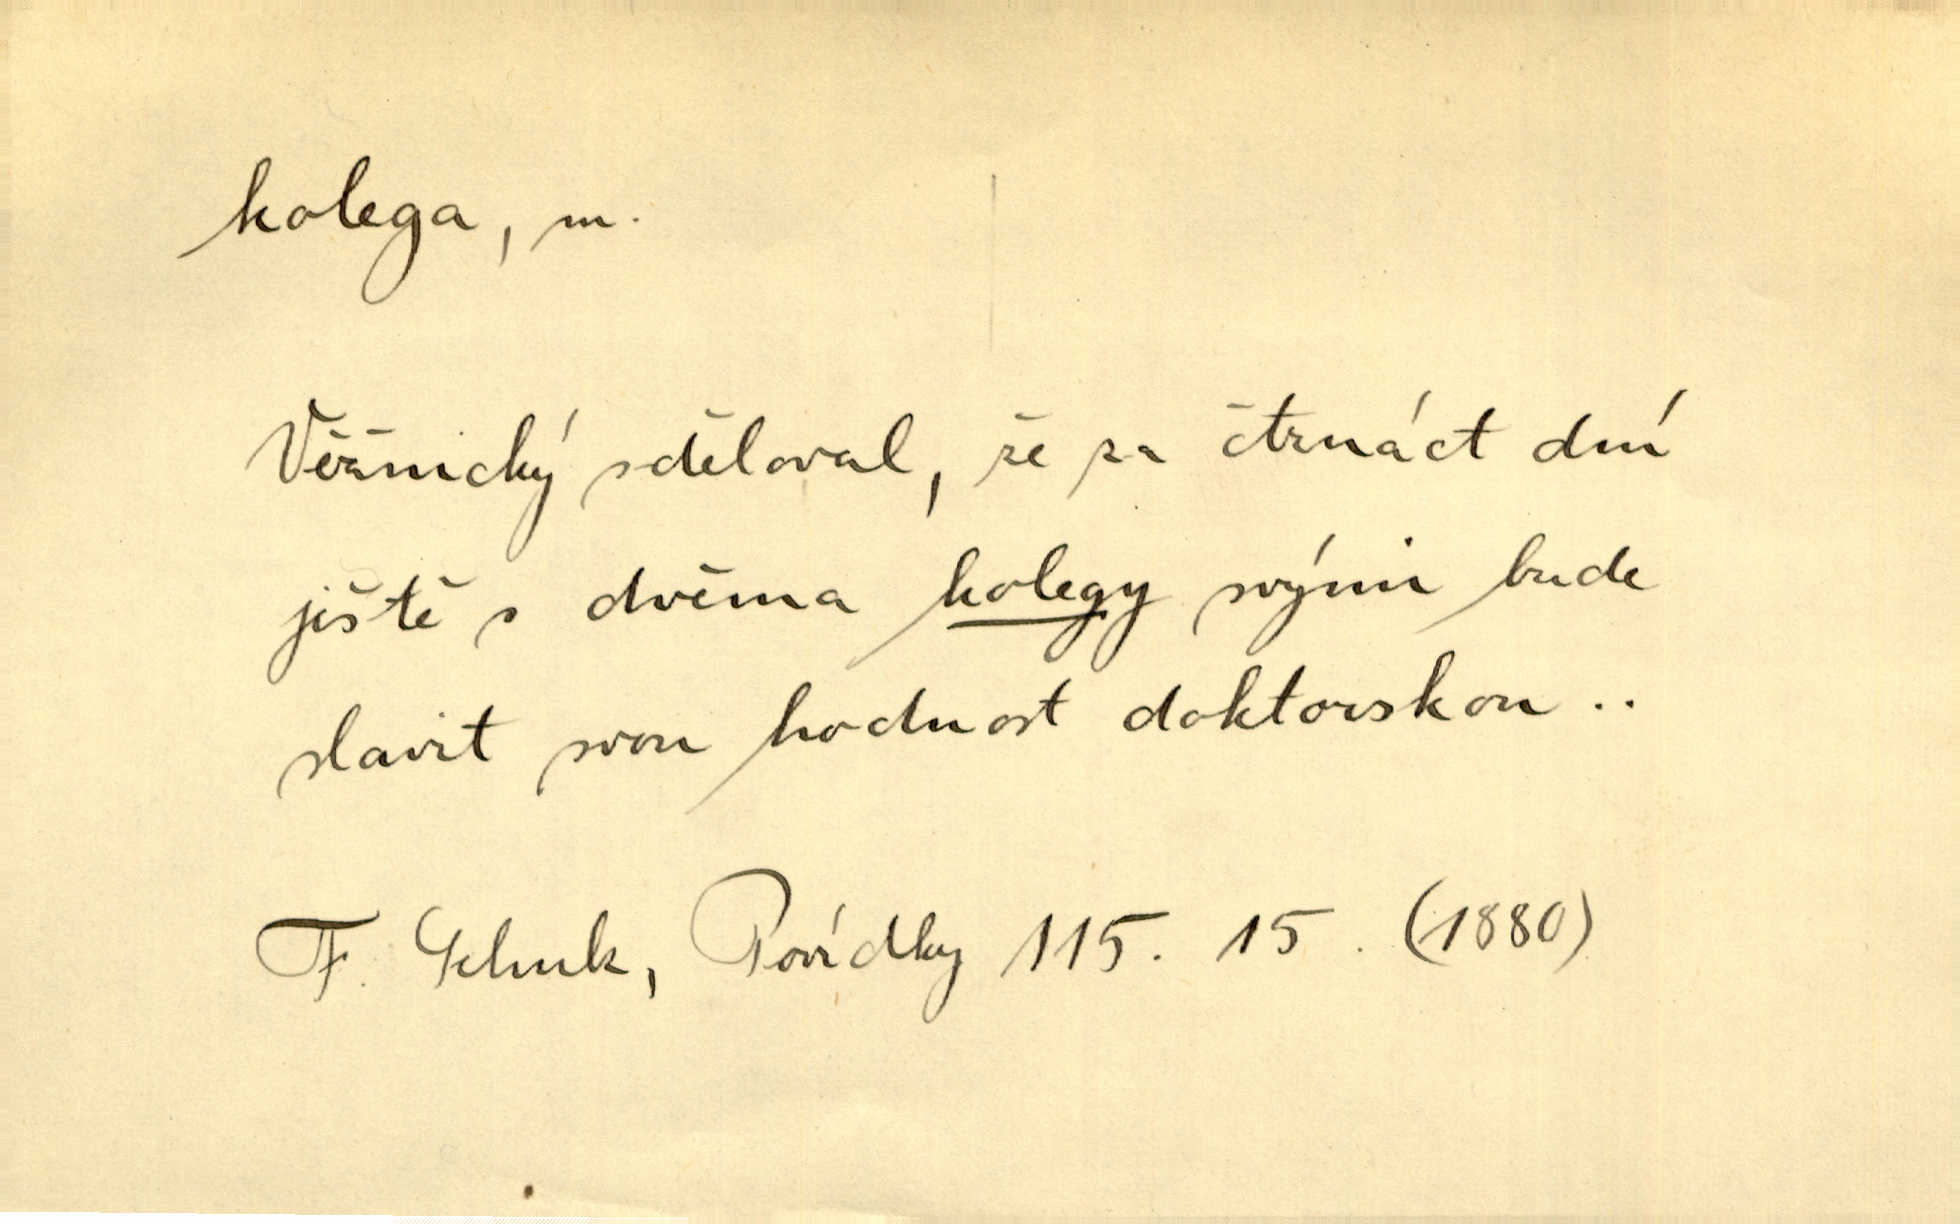 kolega, m.
Věžnický sděloval, že za čtrnáct dní
ještě s dvěma kolegy svými bude
slavit svou hodnost doktorskou ..
F. Schulz, Povídky 115. 15. (1880)